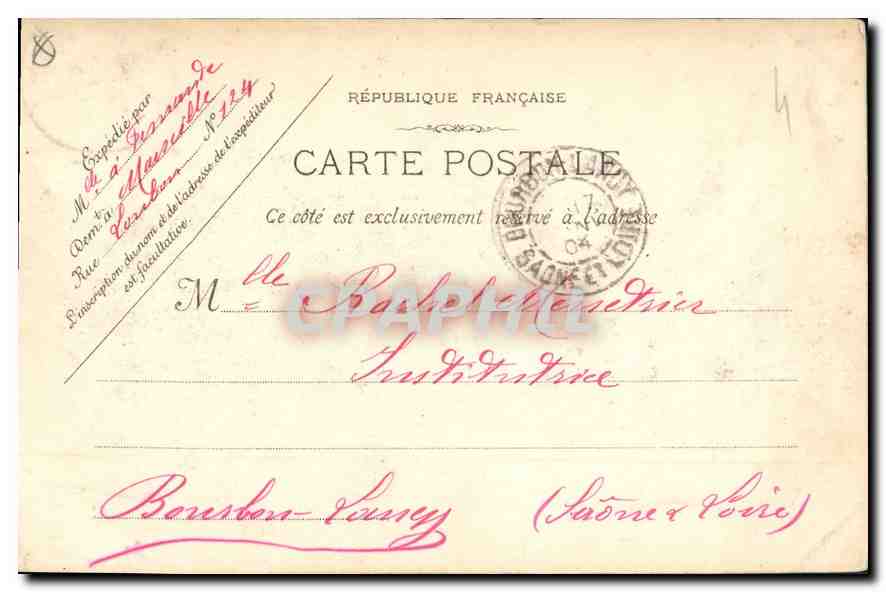 RÉPUBLIQUE FRANÇAISE
CARTE POSTALE
Ce côté est exclusivement réservé à l'adresse
Expédié par
Mlle
Demt à Marseille
Rue N° 124
L'inscription du nom et de l'adresse de l'expéditeur
est facultative.
BOURBON-LANCY
04
SAONE ET LOIRE
Mlle Rachel Menetrier
Institutrice
Bourbon-Lancy (Saône & Loire)
CPAPHIL
4